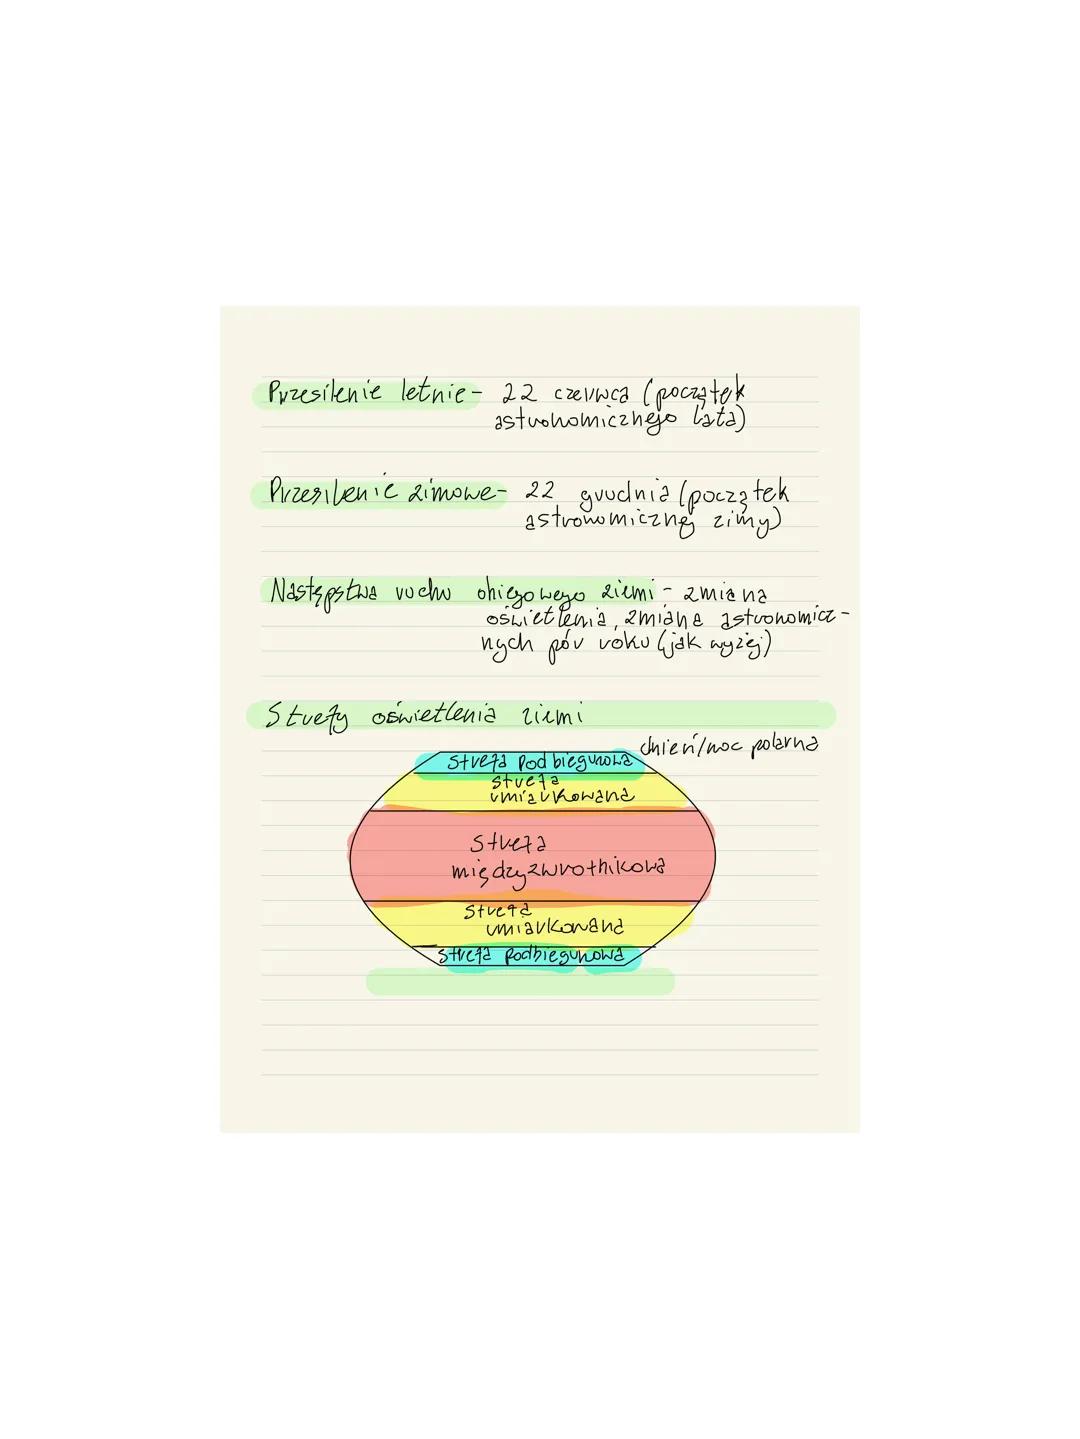 Przesilenie letnie - 22 czerwca (początek
astronomicznego lata)
Przesilenie zimowe - 22 grudnia (początek
astronomicznej zimy)
Następstwa ruchu obiegowego ziemi - zmiana
oświetlenia, zmiana astronomicz-
nych pór roku (jak wyżej)
Strefy oświetlenia ziemi
dzień/noc polarna
strefa podbiegunowa
strefa
umiarkowana
strefa
międzyzwrotnikowa
strefa
umiarkowana
strefa podbiegunowa